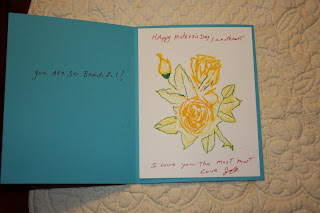 you Are So Beautiful!
HAppy Mother's Day Sweetheart
I Love you The Most Most
Love